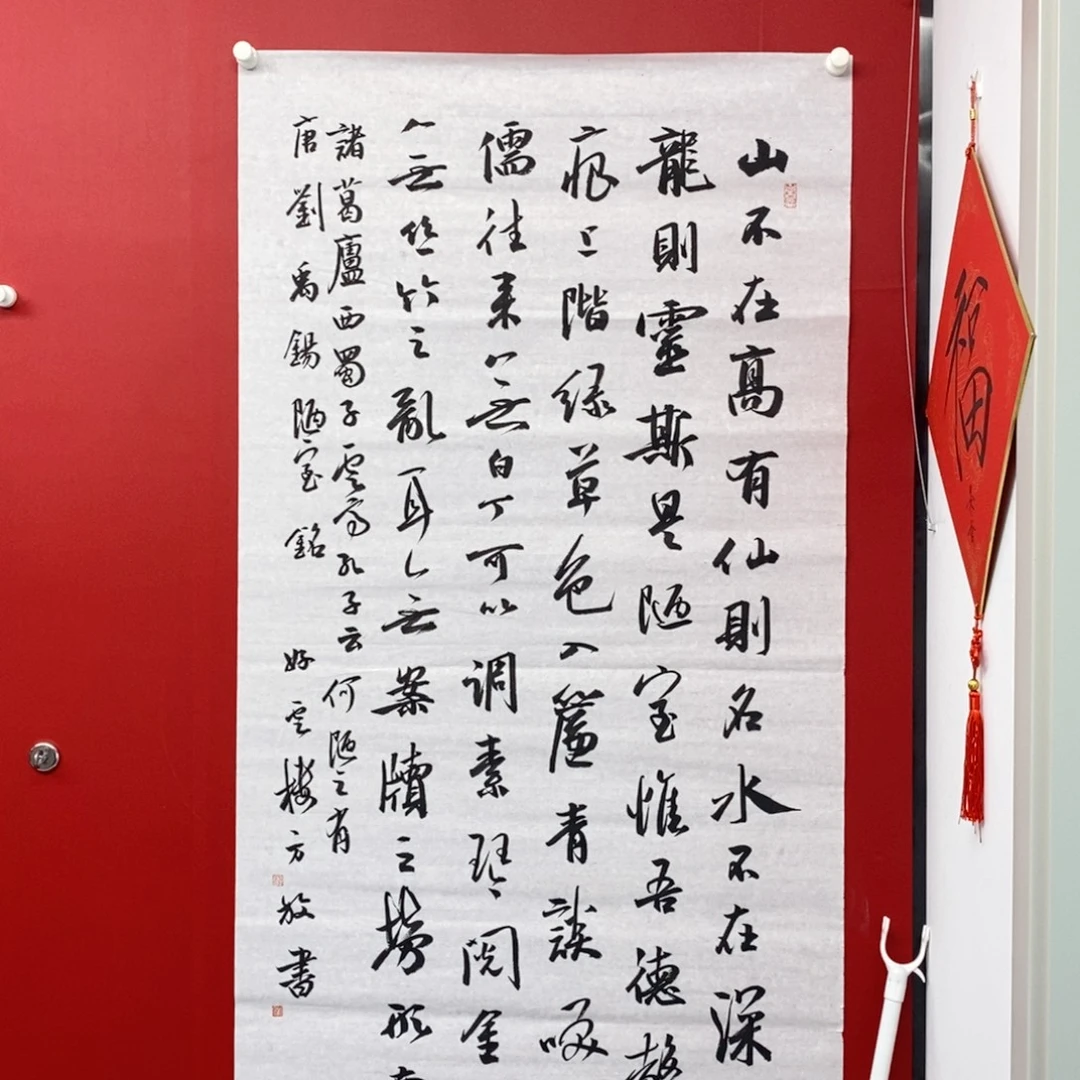 山不在高有仙則名水不在深
龍則靈斯是陋室惟吾德馨
痕上階緑草色入簾青談咲
儒往来無白丁可以调素琴閲金
無丝竹之亂耳無案牘之勞形
諸葛廬西蜀子雲亭孔子云何陋之有
唐劉禹錫陋室銘 好雲樓方放書
福